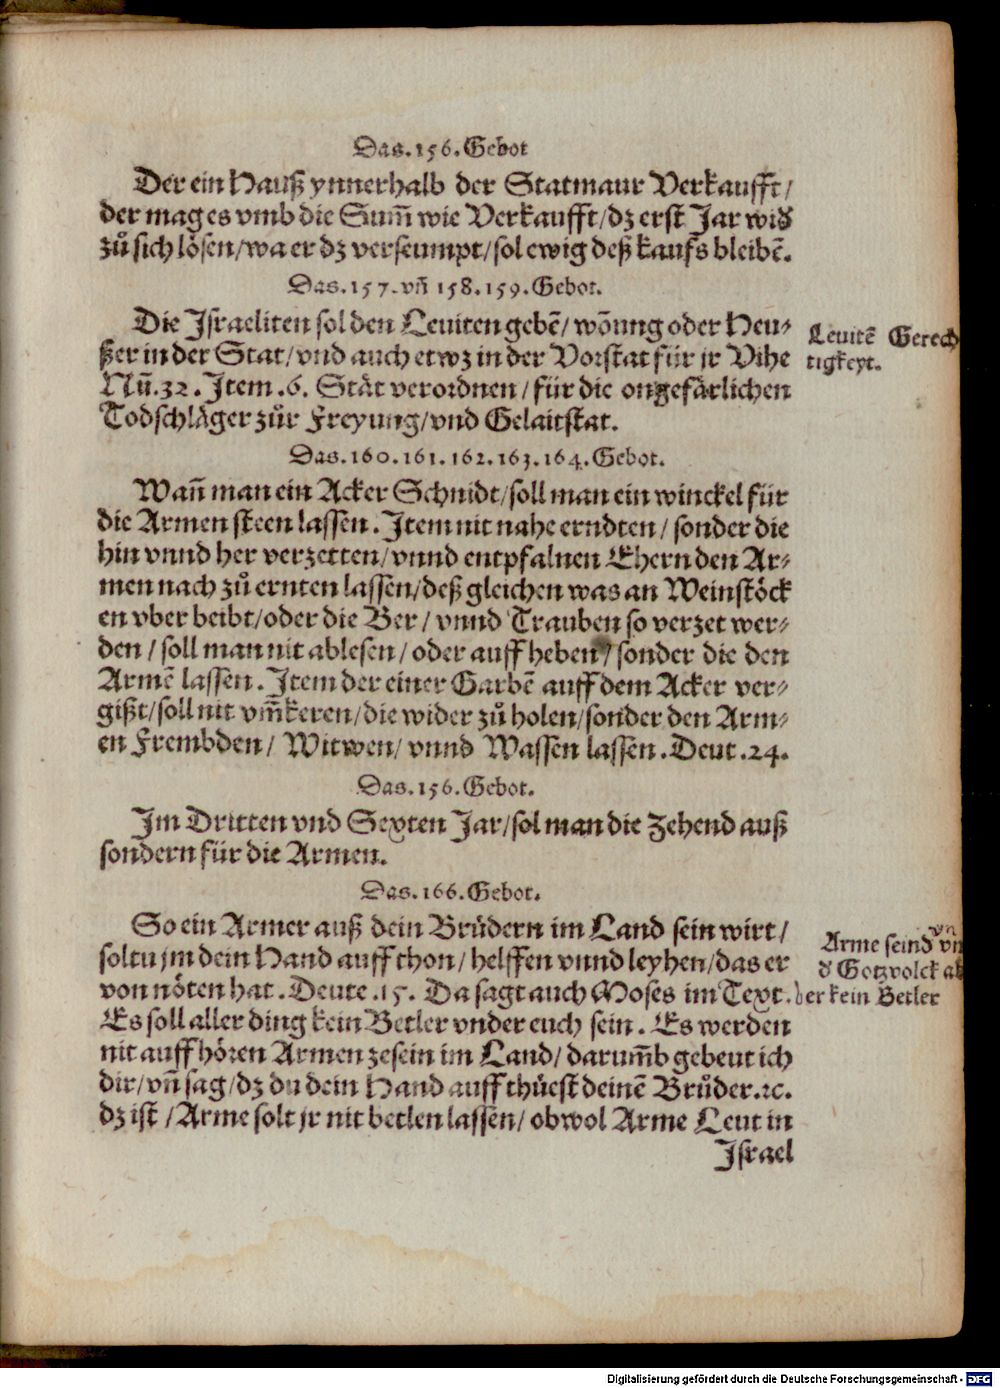 Das.156.Gebot
Der ein Hauß ynnerhalb der Statmaur Verkaufft/
der mag es vmb die Sum̃ wie Verkaufft/dz erst Jar wið
zů sich lösen/wa er dz verseumpt/sol ewig deß kaufs bleibẽ.
Das.157.vñ 158.159.Gebot.
Die Israeliten sol den Leuiten gebẽ/ wõung oder Heu⸗
ßer in der Stat/vnd auch etwz in der Vorstat für jr Vihe
Nũ.32. Item .6. Stät verordnen/ für die ongefärlichen
Todschläger zůr Freyung/vnd Gelaitstat.
Leuitẽ Gerech
tigkeyt.
Das.160.161.162.163.164.Gebot.
Wañ man ein Acker Schnidt/soll man ein winckel für
die Armen steen lassen. Item nit nahe erndten/ sonder die
hin vnnd her verzetten/vnnd entpfalnen Ehern den Ar⸗
men nach zů ernten lassen/deß gleichen was an Weinstöck
en vber beibt/oder die Ber/ vnnd Trauben so verzet wer⸗
den/ soll man nit ablesen/ oder auff heben/ sonder die den
Armẽ lassen. Item der einer Garbẽ auff dem Acker ver⸗
gißt/soll nit vm̃keren/die wider zů holen/sonder den Arm⸗
en Frembden/ Witwen/ vnnd Wassen lassen. Deut.24.
Das.156.Gebot.
Im Dritten vnd Sexten Jar/sol man die Zehend auß
sondern für die Armen.
Das.166.Gebot.
So ein Armer auß dein Brüdern im Land sein wirt/
soltu jm dein Hand auff thon/ helffen vnnd leyhen/das er
von nöten hat. Deute.15. Da sagt auch Moses im Text.
Es soll aller ding kein Betler vnder euch sein. Es werden
nit auff hören Armen zesein im Land/ darum̃b gebeut ich
dir/vñ sag/dz du dein Hand auff thüest deinẽ Brůder.ꝛc.
dz ist/Arme solt jr nit betlen lassen/ obwol Arme Leut in
Israel
Arme seind vn
ð Gotzvolck ab
er kein Betler
Digitalisierung gefördert durch die Deutsche Forschungsgemeinschaft - DFG